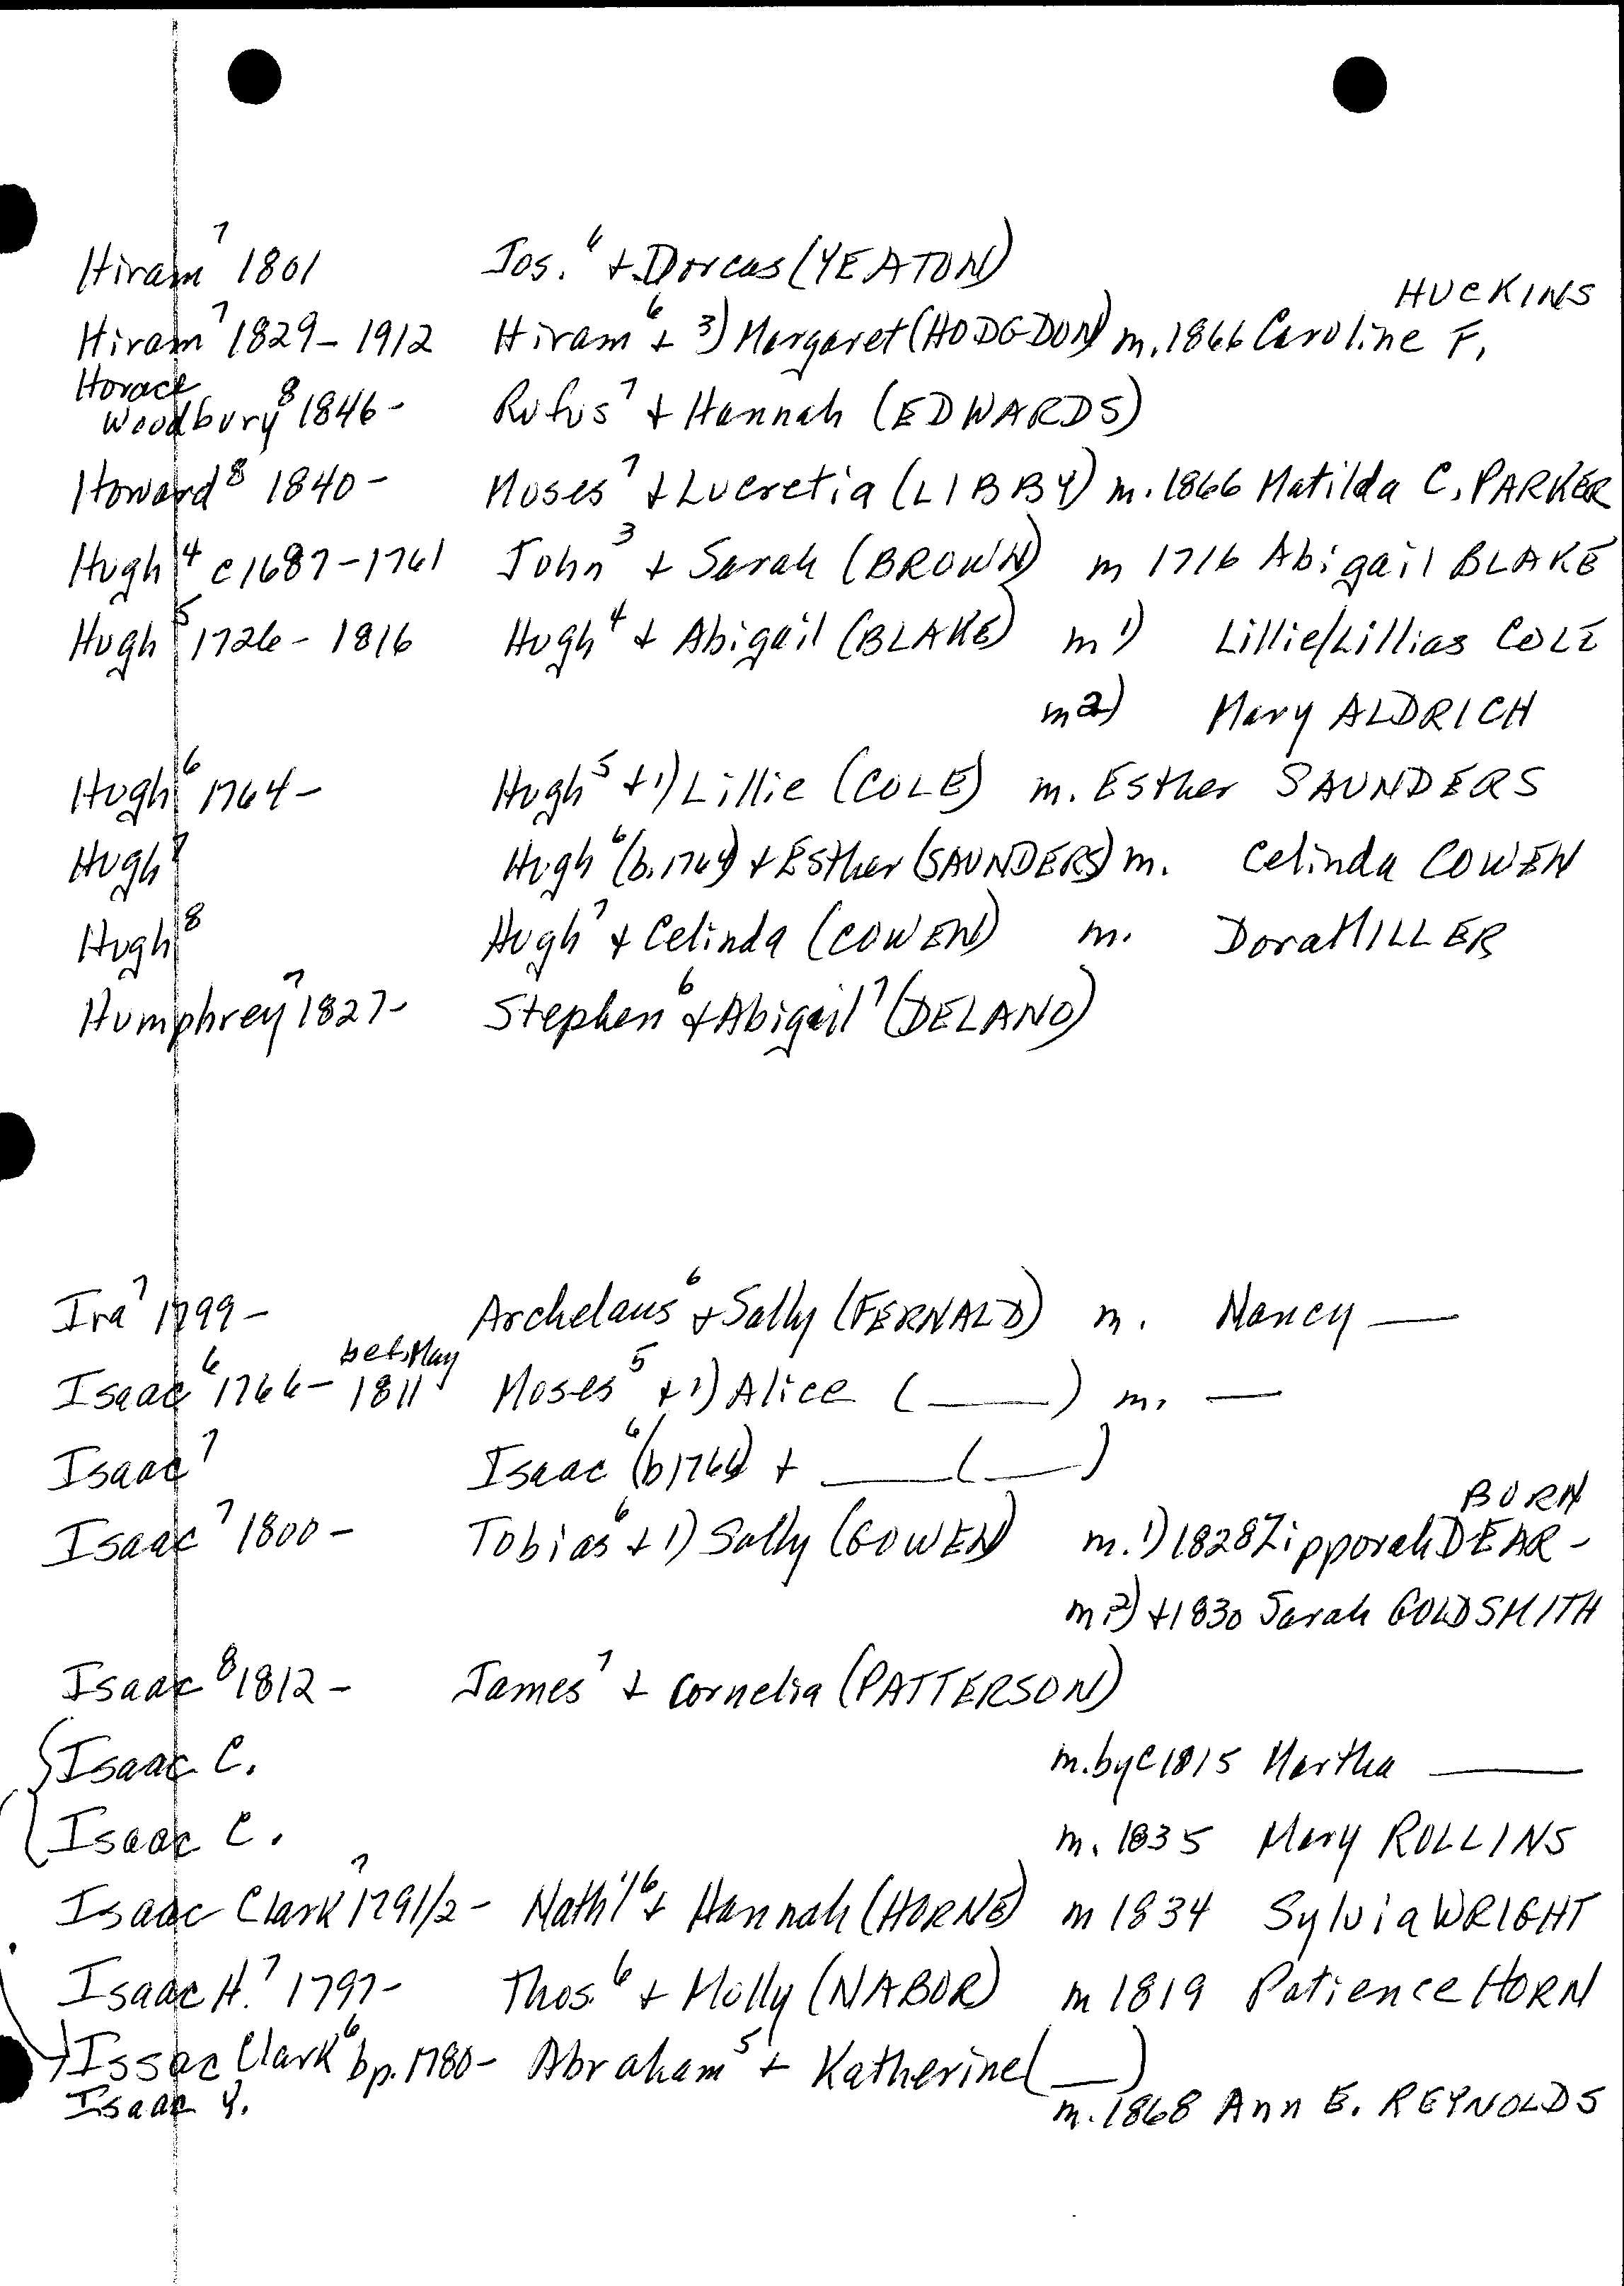 Hiram⁷ 1801 Jos.⁶ + Dorcas (YEATON)
HUCKINS
Hiram⁷ 1829-1912 Hiram⁶ + 3) Margaret (HODGDON) m. 1866 Caroline F.
Horace
Woodbury⁸ 1846- Rufus⁷ + Hannah (EDWARDS)
Howard⁸ 1840- Moses⁷ + Lucretia (LIBBY) m. 1866 Matilda C. PARKER
Hugh⁴ c1687-1761 John³ + Sarah (BROWN) m 1716 Abigail BLAKE
Hugh⁵ 1726-1816 Hugh⁴ + Abigail (BLAKE) m 1) Lillie/Lillias COLE
m 2) Mary ALDRICH
Hugh⁶ 1764- Hugh⁵ + 1) Lillie (COLE) m. Esther SAUNDERS
Hugh⁷ Hugh⁶ (b. 1764) + Esther (SAUNDERS) m. Celinda COWEN
Hugh⁸ Hugh⁷ + Celinda (COWEN) m. Dora MILLER
Humphrey⁷ 1827- Stephen⁶ + Abigail⁷ (DELANO)
Ira⁷ 1799- Archelaus⁶ + Sally (FERNALD) m. Nancy —
bef. May
Isaac⁶ 1766-1811 Moses⁵ + 1) Alice (___) m. —
Isaac⁷ Isaac⁶ (b 1766) + ___ (___)
BORN
Isaac⁷ 1800- Tobias⁶ + 1) Sally (GOWEN) m. 1) 1828 Zipporah DEAR-
m 2) +1830 Sarah GOLDSMITH
Isaac⁸ 1812- James⁷ + Cornelia (PATTERSON)
Isaac C. m. by c1815 Martha ___
Isaac C. m. 1835 Mary ROLLINS
Isaac Clark⁷ 1791/2- Nath'l⁶ + Hannah (HORNE) m 1834 Sylvia WRIGHT
Isaac H.⁷ 1797- Thos.⁶ + Molly (NABOR) m 1819 Patience HORN
Issac Clark⁶ bp. 1780- Abraham⁵ + Katherine (___)
Isaac Y. m. 1868 Ann E. REYNOLDS